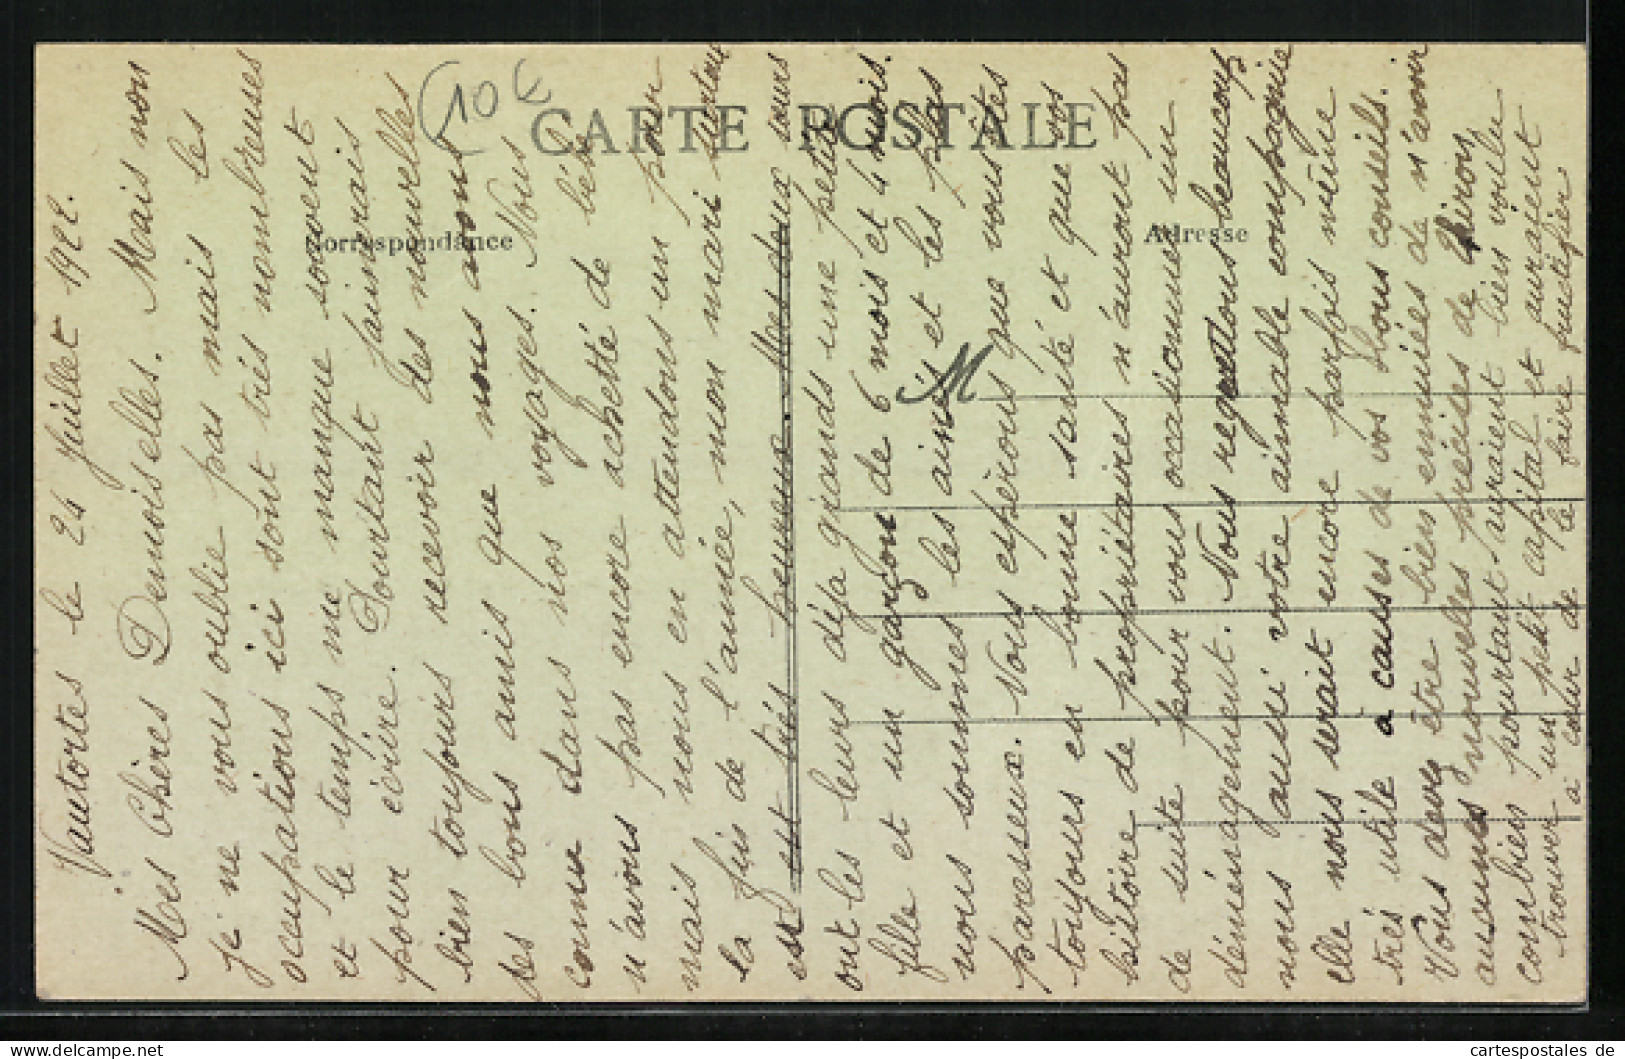 CARTE POSTALE
Correspondance
Adresse
10 €
M
Vautortes le 24 Juillet 1922.
Mes Chères Demoiselles. Mais non
je ne vous oublie pas mais les
occupations ici sont très nombreuses
et le temps me manque souvent
pour écrire. Pourtant j'aimerais
bien toujours recevoir des nouvelles
des bons amis que nous avons
connu dans nos voyages. Nous
n'avons pas encore achetté de bébé
mais nous en attendons un pour
la fin de l'année, mon mari surtout
en est très heureux. Mes deux sœurs
ont les leurs déja grands une petite
fille et un garçon de 6 mois et 4 mois.
nous sommes les ainés et les plas
paresseux. Nous espèrons que vous êtes
toujours en bonne santé et que vos
histoire de propriétaires n'auront pas
de suite pour vous occasionner un
déménagement. Nous regrettons beaucoup
nous aussi votre aimable compagnie
elle nous serait encore parfois même
très utile à causes de vos bons conseils.
Vous devez être bien ennuiées de n'avoir
aucunes nouvelles précises de
combiens pourtant auraient bien voulu
trouver un petit capital et auraient
à cœur de le faire fructifier
cartespostales de